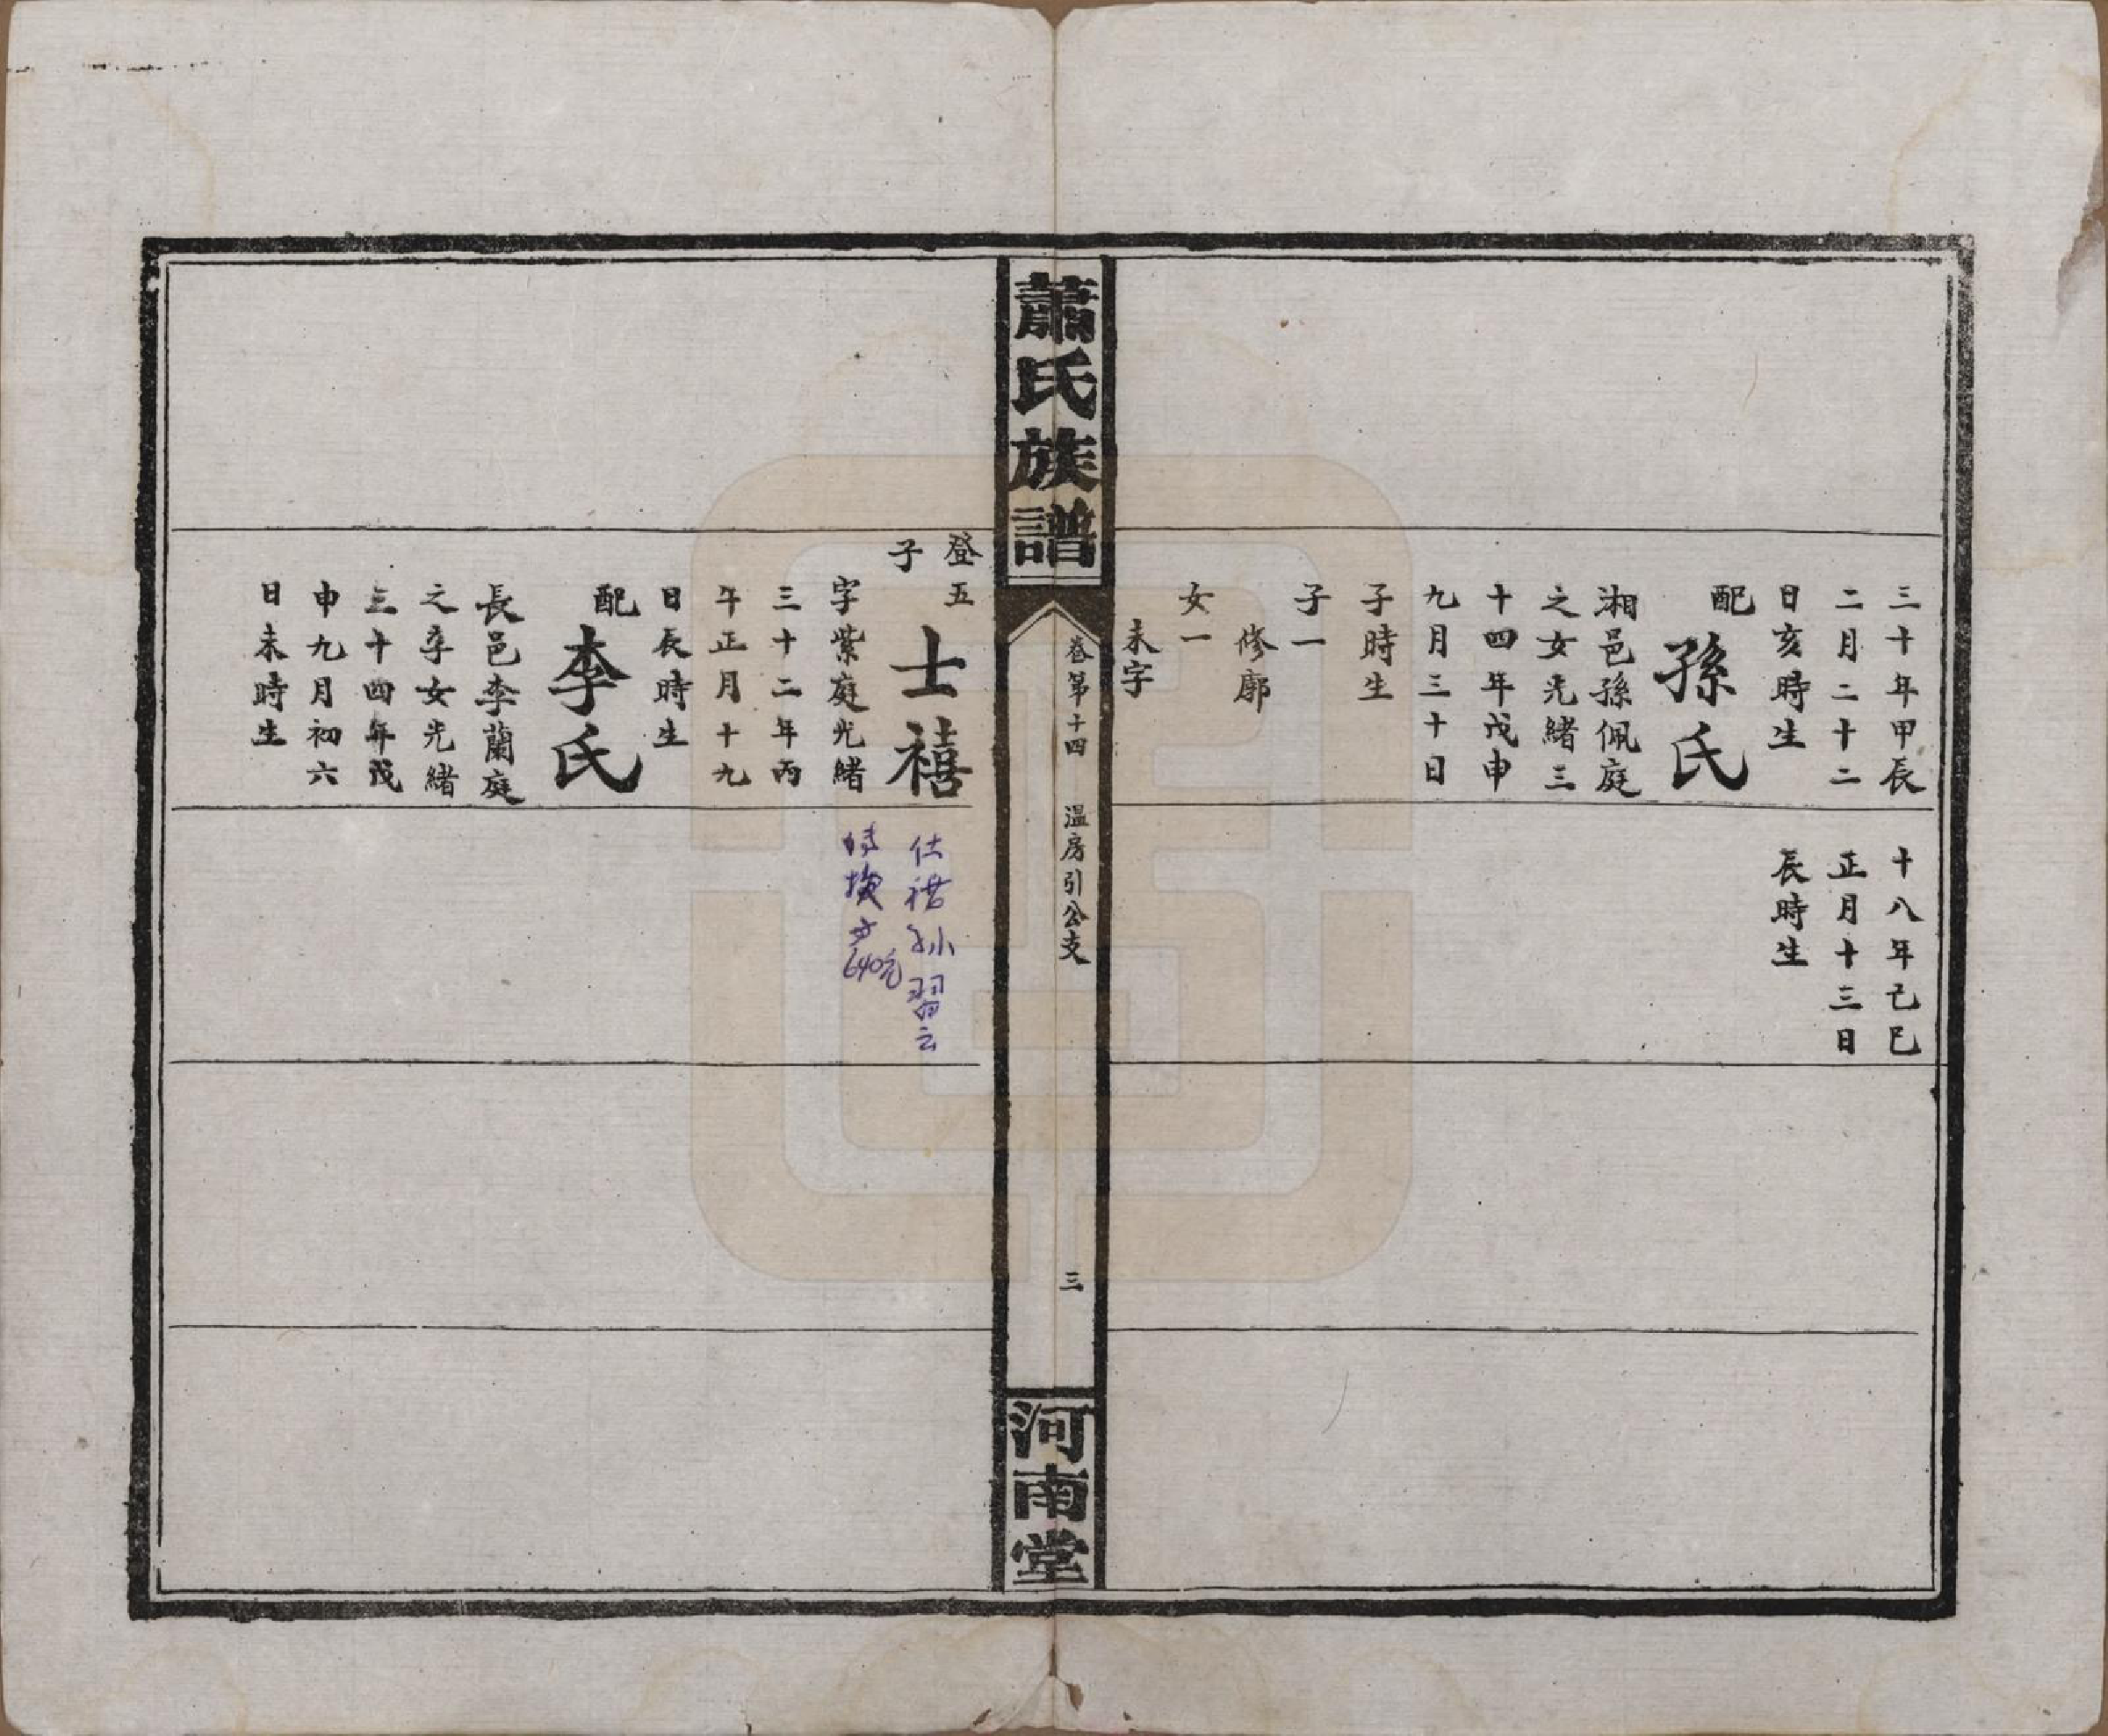 三十年甲辰
二月二十二
日亥時生
配
孫氏
湘邑孫佩庭
之女光緒三
十四年戊申
九月三十日
子時生
子一
修廓
女一
未字
十八年己巳
正月十三日
辰時生
蕭氏族譜
卷第十四
溫房引公支
三
河南堂
登五
子
士禧
字紫庭光緒
三十二年丙
午正月十九
日辰時生
配
李氏
長邑李蘭庭
之季女光緒
三十四年戊
申九月初六
日未時生
孙習云
640元